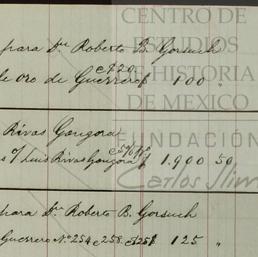 CENTRO DE
ESTUDIOS
DE HISTORIA
DE MEXICO
FUNDACIÓN
Carlos Slim
para Dn Roberto B. Gorsuch
de oro de Guerrero $ 100 "
Rivas Gongora
s/ Luis Rivas Gongora $ 1,900 50
para Dn Roberto B. Gorsuch
Guerrero Nº 254 e 258 125 "